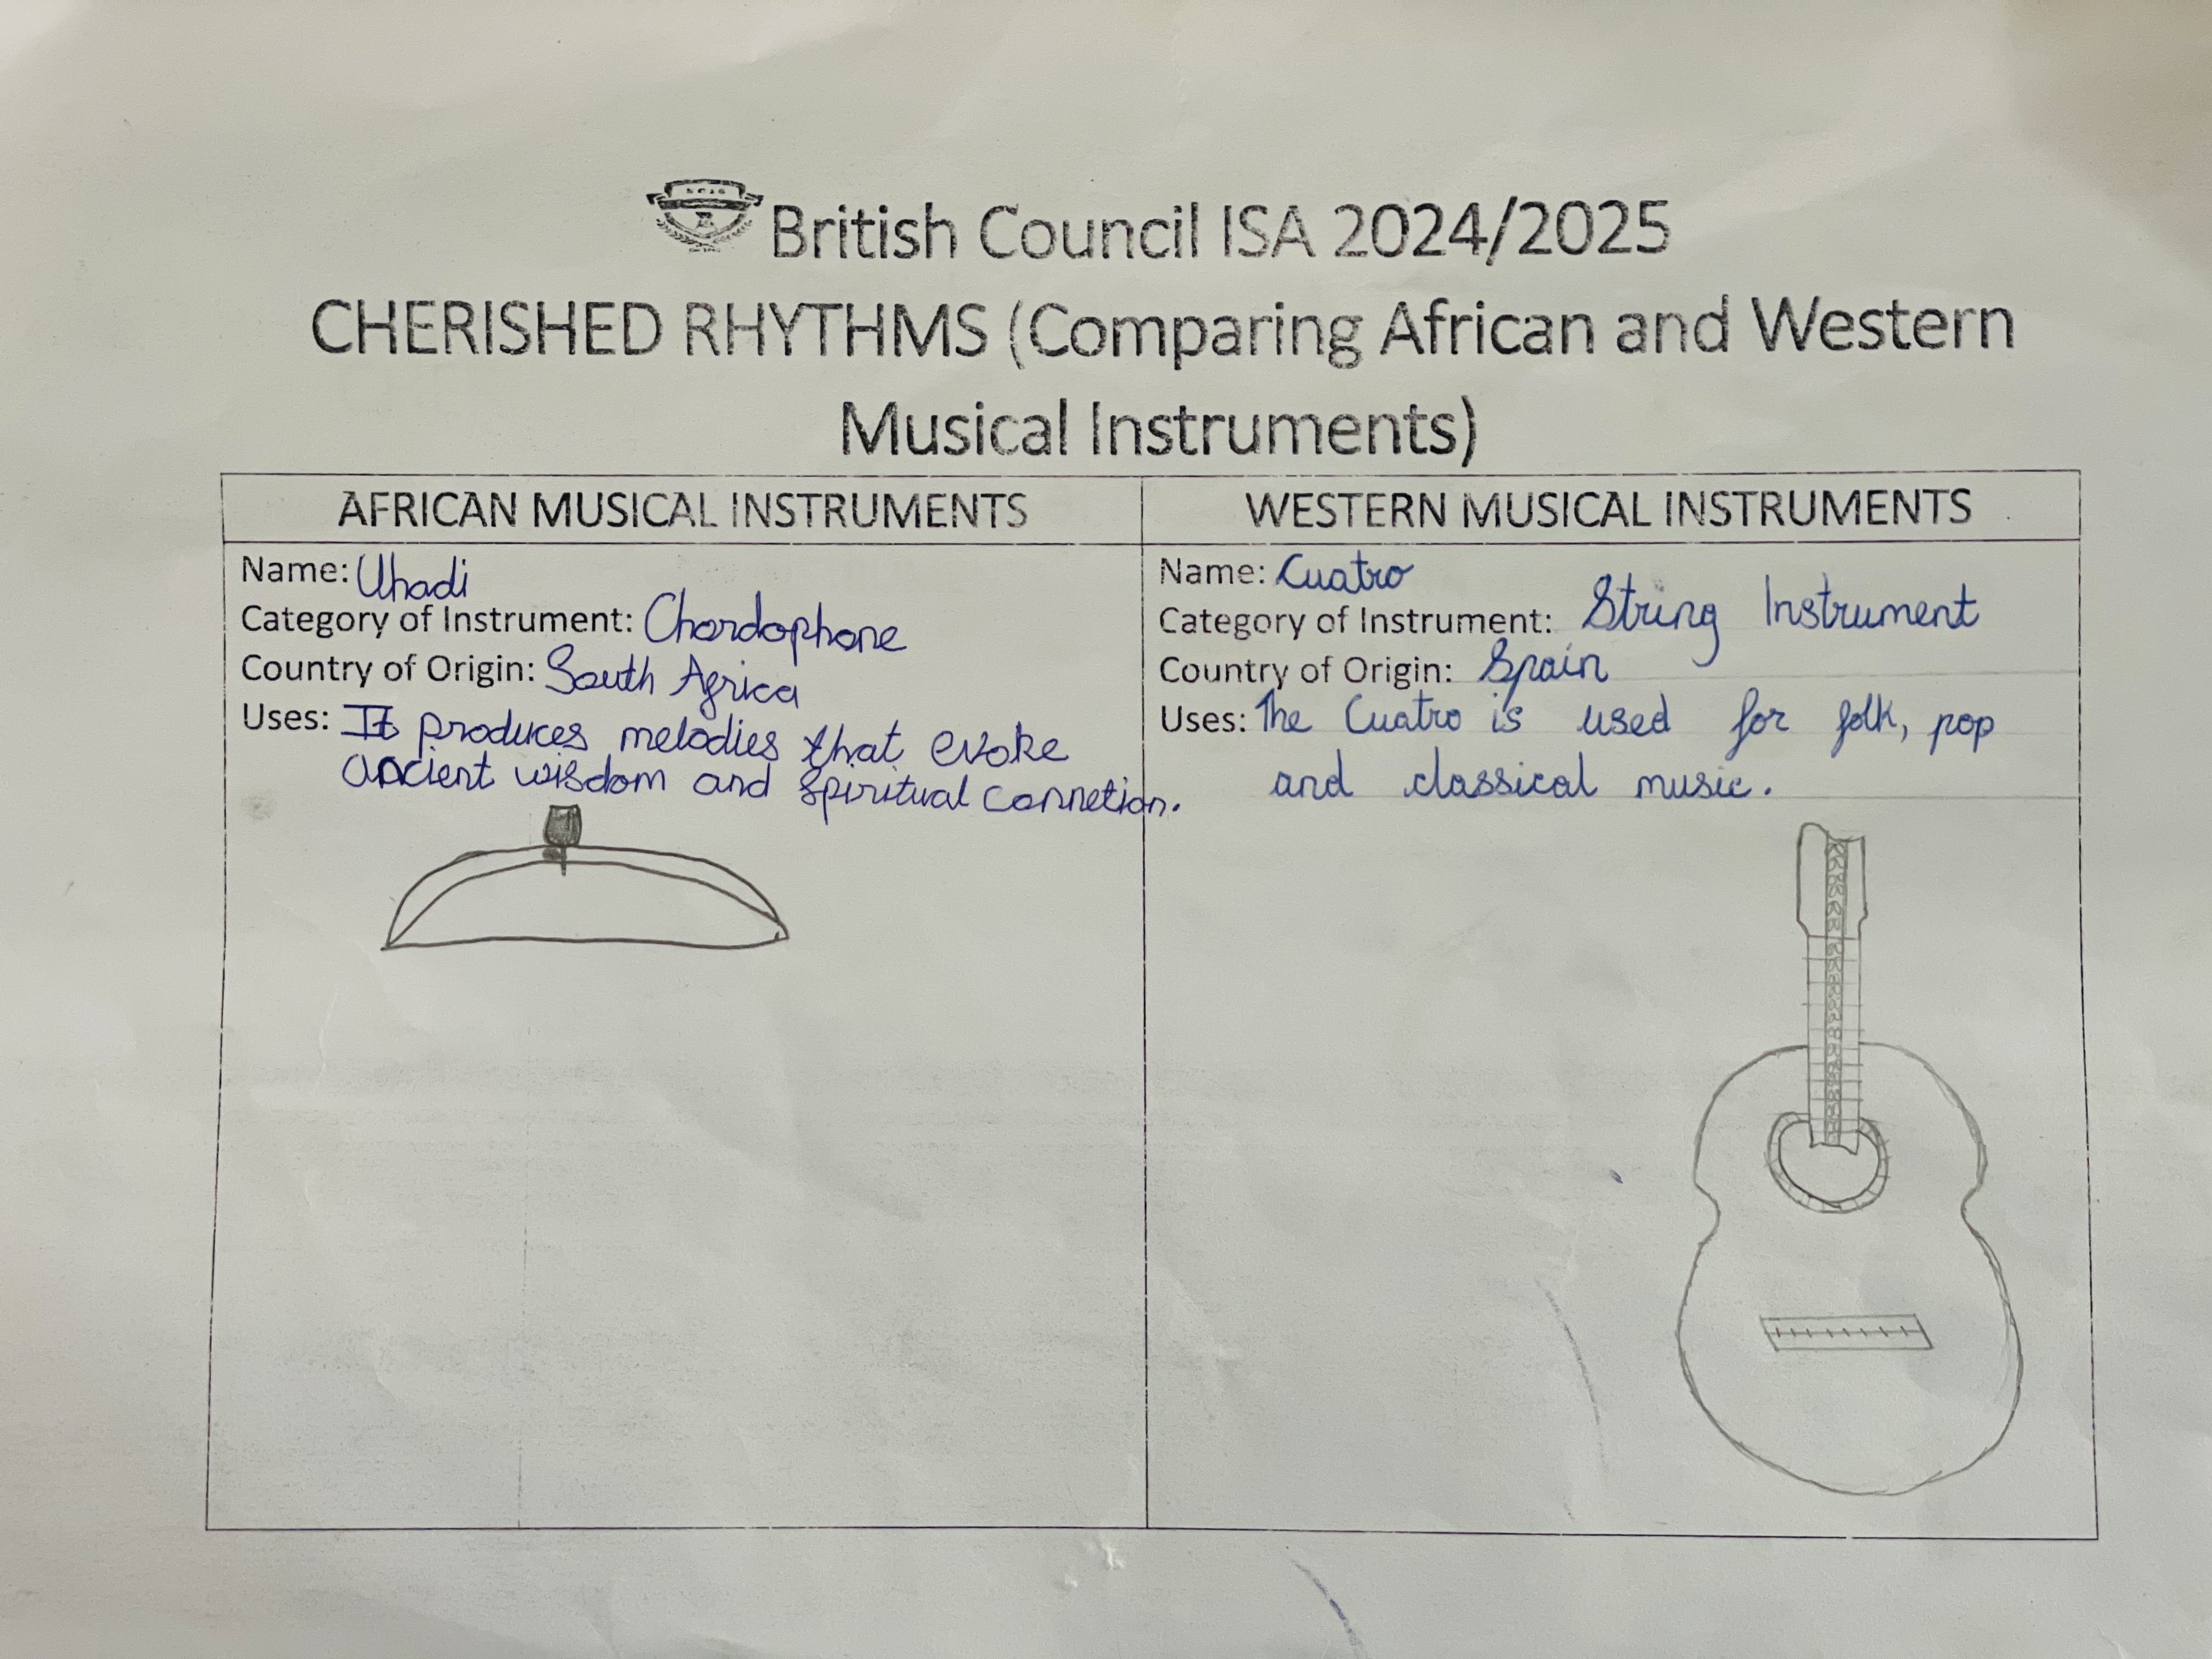 British Council ISA 2024/2025
CHERISHED RHYTHMS (Comparing African and Western
Musical Instruments)
AFRICAN MUSICAL INSTRUMENTS
Name: Uhadi
Category of Instrument: Chordophone
Country of Origin: South Africa
Uses: It produces melodies that evoke
ancient wisdom and spiritual connetion.
WESTERN MUSICAL INSTRUMENTS
Name: Cuatro
Category of Instrument: String Instrument
Country of Origin: Spain
Uses: The Cuatro is used for folk, pop
and classical music.